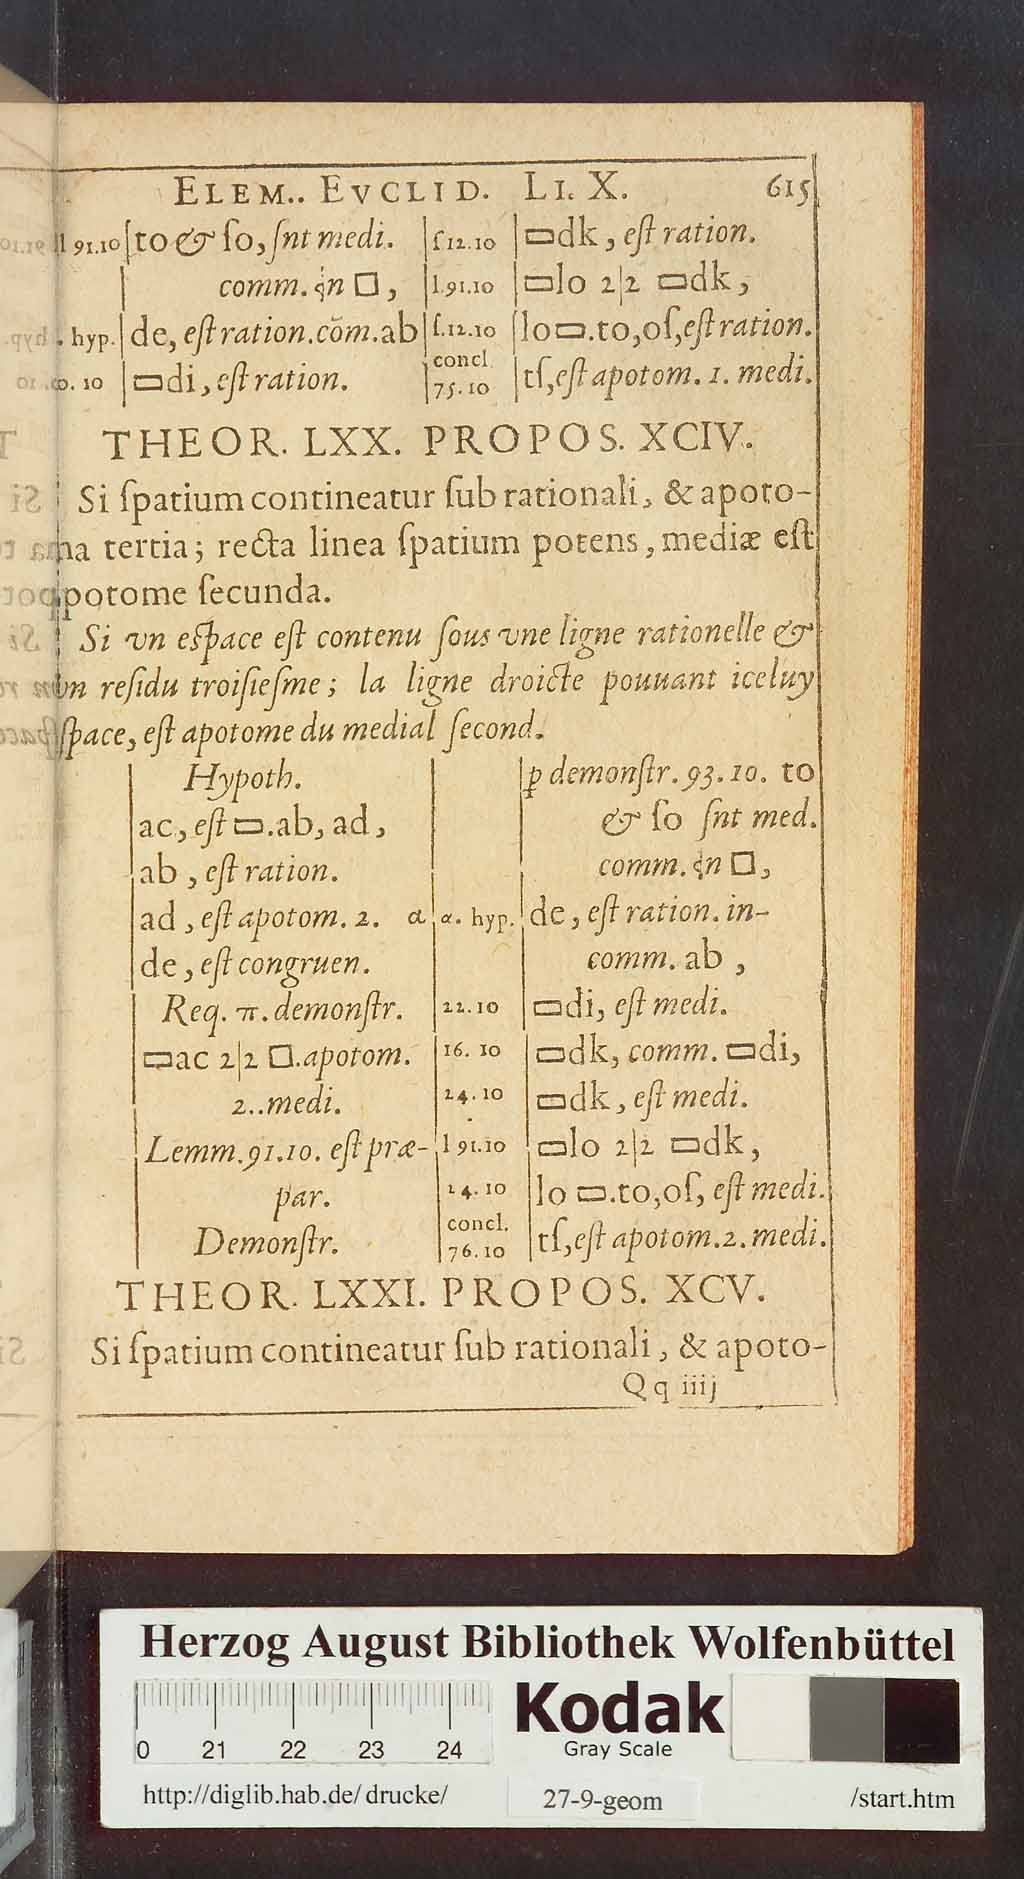 ELEM.. EVCLID. LI. X. 615
l 91.10 to & ſo, ſnt medi.
comm. ɋn □,
hyp. de, eſt ration. cõm. ab
10 ▭di, eſt ration.
ſ.12.10 ▭dk, eſt ration.
l.91.10 ▭lo 2|2 ▭dk,
ſ.12.10 lo▭.to,oſ, eſt ration.
concl.
75.10 tſ, eſt apotom. 1. medi.
THEOR. LXX. PROPOS. XCIV.
Si ſpatium contineatur ſub rationali, & apoto-
ma tertia; recta linea ſpatium potens, mediæ eſt
apotome ſecunda.
Si vn eſpace eſt contenu ſous vne ligne rationelle &
vn reſidu troiſieſme; la ligne droicte pouuant iceluy
eſpace, eſt apotome du medial ſecond.
Hypoth.
ac, eſt ▭.ab, ad,
ab, eſt ration.
ad, eſt apotom. 2. α
de, eſt congruen.
Req. π. demonſtr.
▭ac 2|2 □.apotom.
2..medi.
Lemm.91.10. eſt præ-
par.
Demonſtr.
ꝑ demonſtr. 93.10. to
& ſo ſnt med.
comm. ɋn □,
α. hyp. de, eſt ration. in-
comm. ab,
22.10 ▭di, eſt medi.
16.10 ▭dk, comm. ▭di,
24.10 ▭dk, eſt medi.
l 91.10 ▭lo 2|2 ▭dk,
24.10 lo ▭.to,oſ, eſt medi.
concl.
76.10 tſ, eſt apotom.2. medi.
THEOR. LXXI. PROPOS. XCV.
Si ſpatium contineatur ſub rationali, & apoto-
Qq iiij
Herzog August Bibliothek Wolfenbüttel
0 21 22 23 24
Kodak
Gray Scale
http://diglib.hab.de/drucke/ 27-9-geom /start.htm